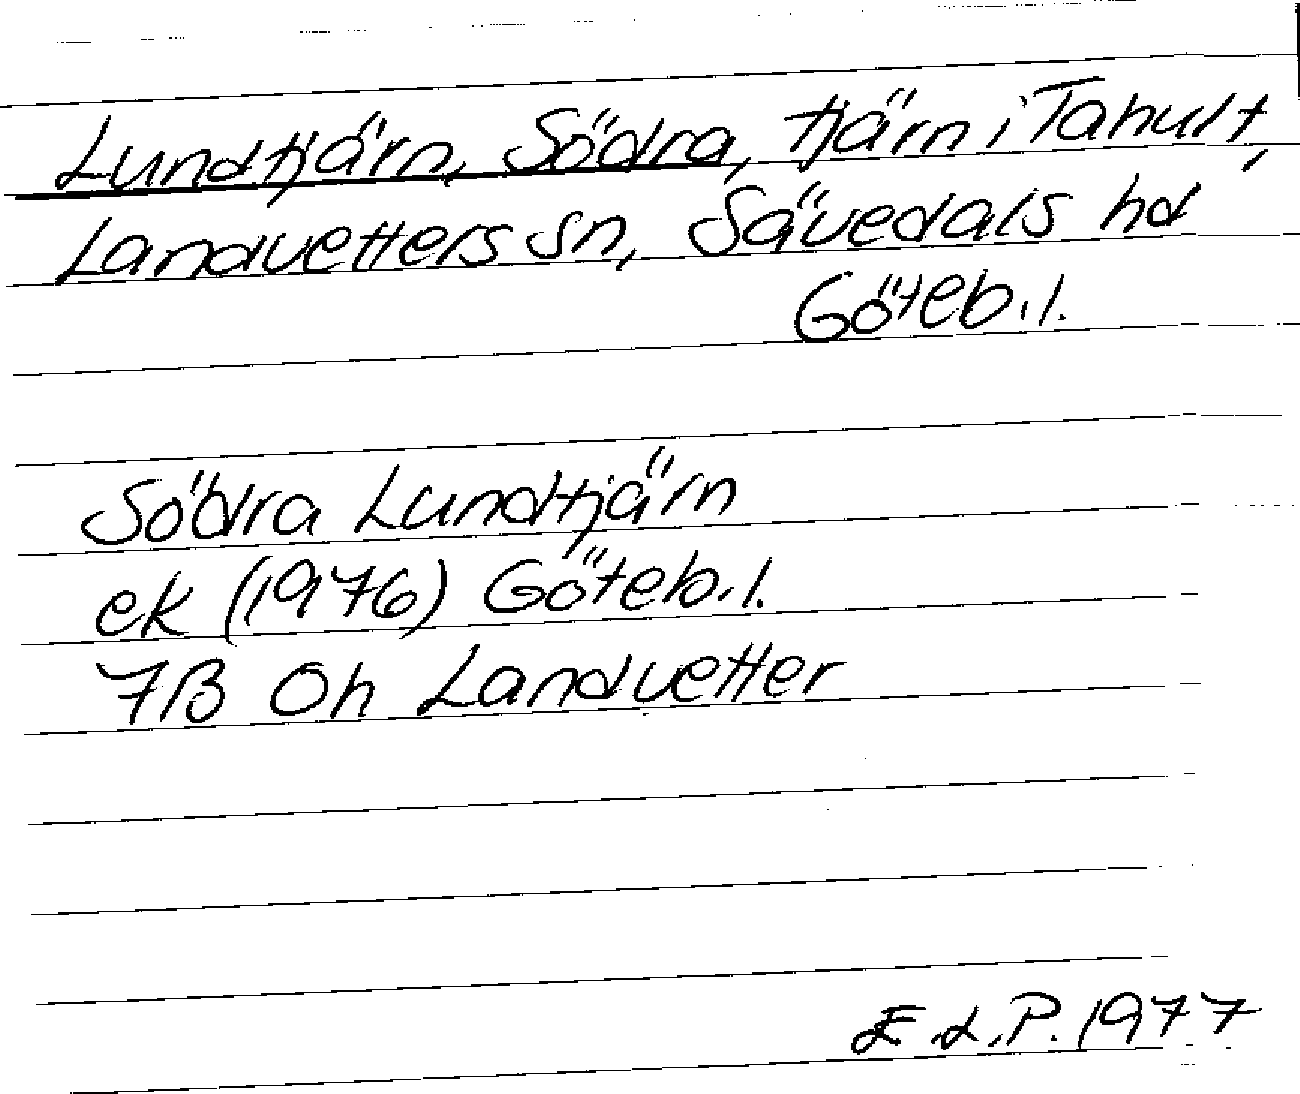 Lundtjärn, Södra, tjärn i Tahult,
Landvetters sn, Sävedals hd
Göteb.l.
Södra Lundtjärn
ek (1976) Göteb.l.
7B Oh Landvetter
E.L.P. 1977